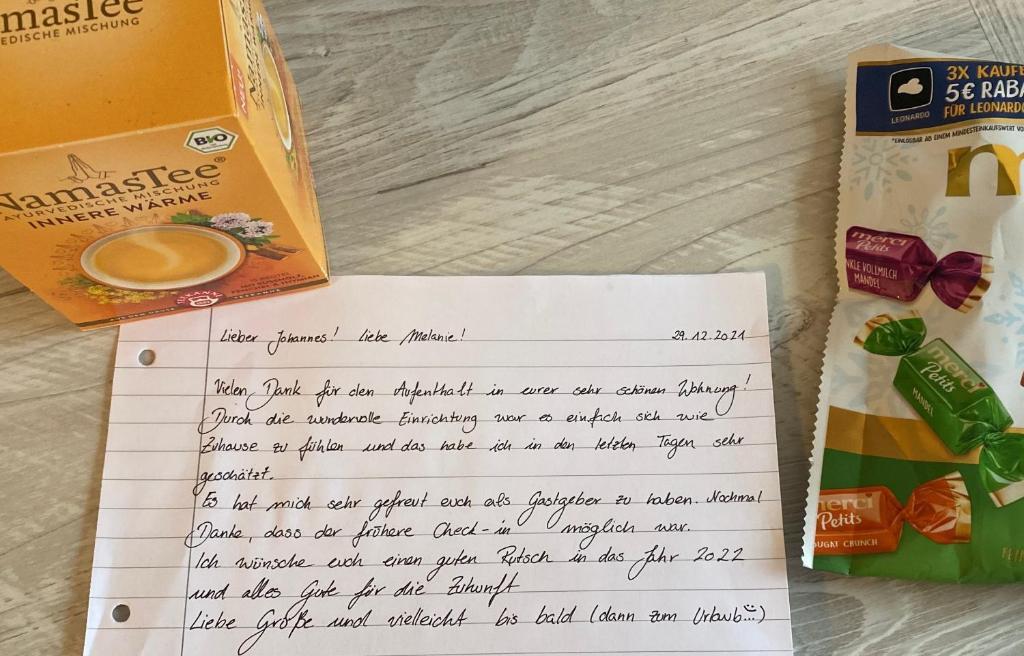 masTee
EDISCHE MISCHUNG
BIO
NamasTee®
AYURVEDISCHE MISCHUNG
INNERE WÄRME
3X KAUFE
5€ RABA
FÜR LEONARDO
LEONARDO
*EINLÖSBAR AB EINEM MINDESTEINKAUFSWERT VO
m
merci
Petits
NKLE VOLLMILCH
MANDEL
merci
Petits
MANDEL
merci
Petits
NUGAT CRUNCH
Lieber Johannes! Liebe Melanie! 29.12.2021
Vielen Dank für den Aufenthalt in eurer sehr schönen Wohnung!
Durch die wundervolle Einrichtung war es einfach sich wie
Zuhause zu fühlen und das habe ich in den letzten Tagen sehr
geschätzt.
Es hat mich sehr gefreut euch als Gastgeber zu haben. Nochmal
Danke, dass der frühere Check-in möglich war.
Ich wünsche euch einen guten Rutsch in das Jahr 2022
und alles Gute für die Zukunft
Liebe Grüße und vielleicht bis bald (dann zum Urlaub...)